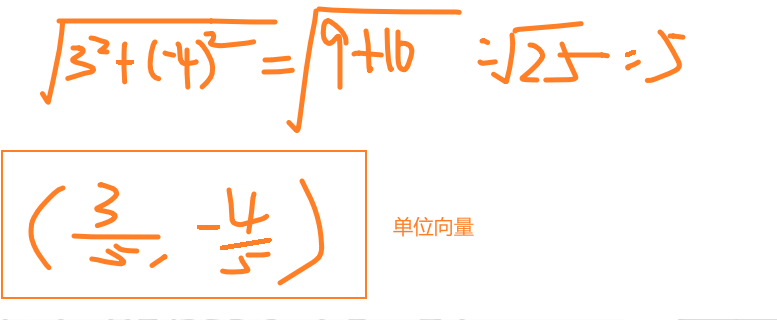 √(3²+(-4)²) = √(9+16) = √25 = 5
(3/5, -4/5) 单位向量